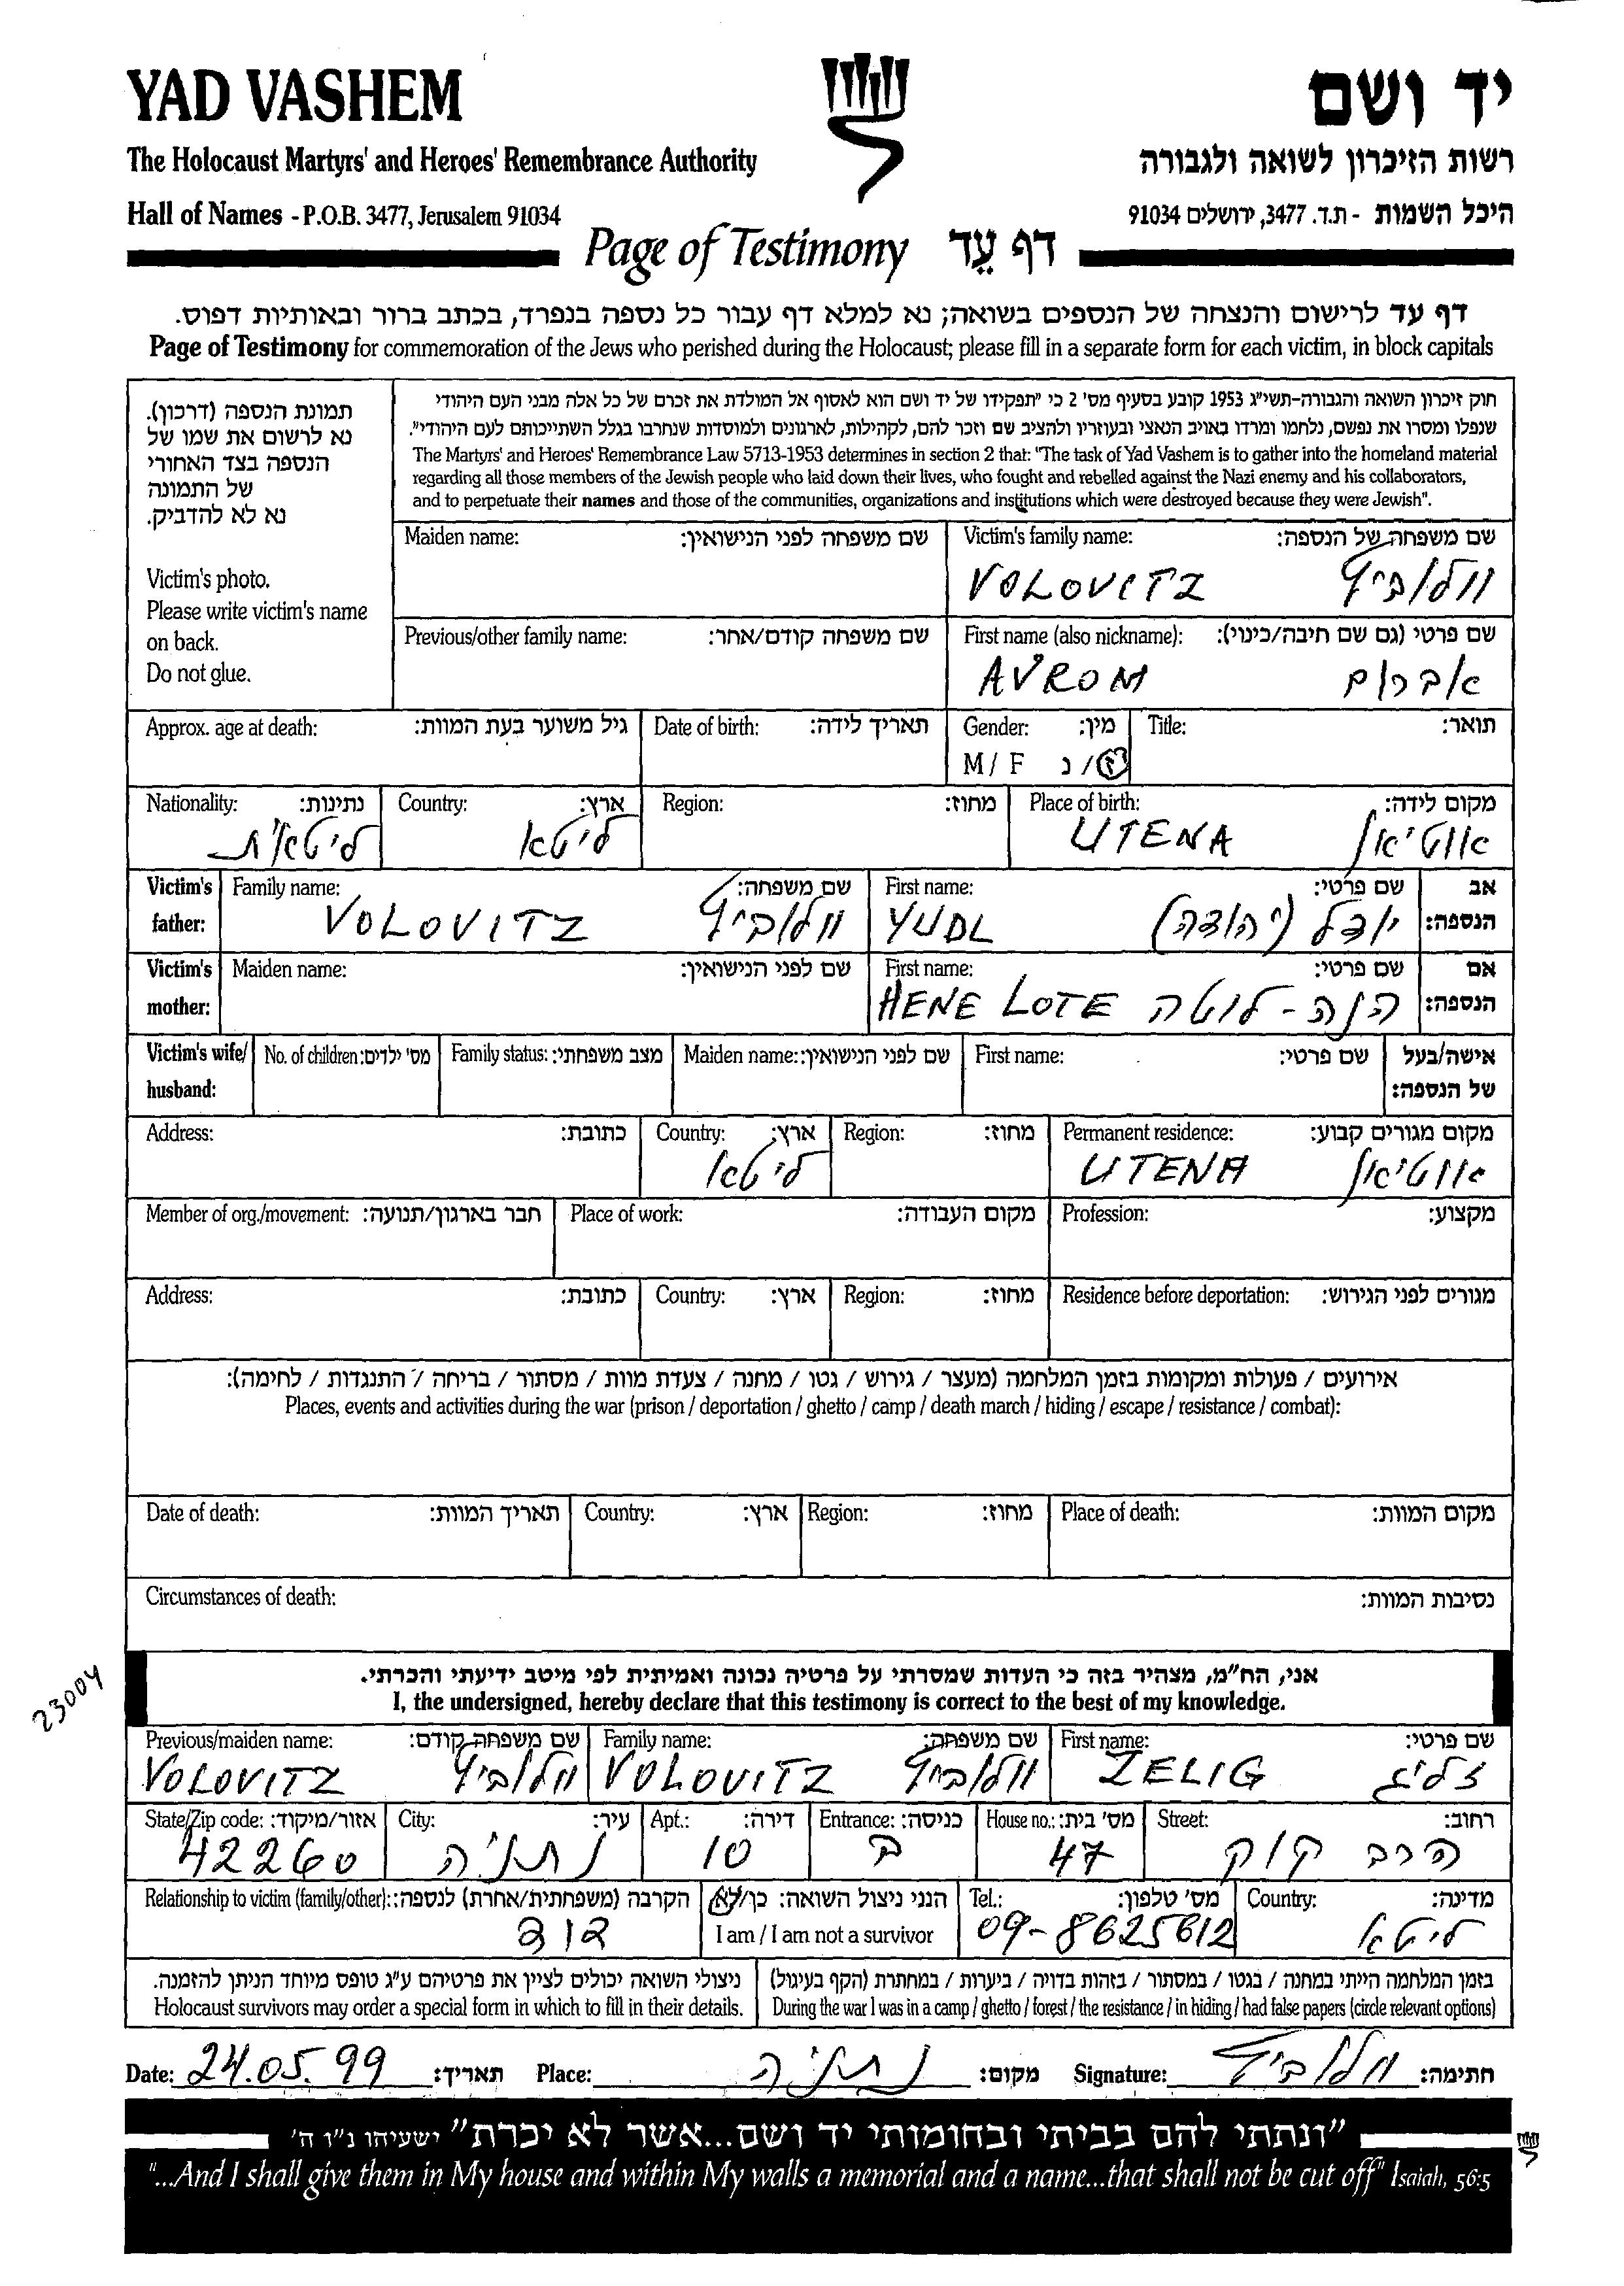 YAD VASHEM יד ושם
The Holocaust Martyrs' and Heroes' Remembrance Authority רשות הזיכרון לשואה ולגבורה
Hall of Names - P.O.B. 3477, Jerusalem 91034 היכל השמות - ת.ד. 3477, ירושלים 91034
Page of Testimony דף עֵד
דף עד לרישום והנצחה של הנספים בשואה; נא למלא דף עבור כל נספה בנפרד, בכתב ברור ובאותיות דפוס.
Page of Testimony for commemoration of the Jews who perished during the Holocaust; please fill in a separate form for each victim, in block capitals
תמונת הנספה (דרכון).
נא לרשום את שמו של
הנספה בצד האחורי
של התמונה
נא לא להדביק.
Victim's photo.
Please write victim's name
on back.
Do not glue.
חוק זיכרון השואה והגבורה-תשי"ג 1953 קובע בסעיף מס' 2 כי "תפקידו של יד ושם הוא לאסוף אל המולדת את זכרם של כל אלה מבני העם היהודי
שנפלו ומסרו את נפשם, נלחמו ומרדו באויב הנאצי ובעוזריו ולהציב שם וזכר להם, לקהילות, לארגונים ולמוסדות שנחרבו בגלל השתייכותם לעם היהודי".
The Martyrs' and Heroes' Remembrance Law 5713-1953 determines in section 2 that: "The task of Yad Vashem is to gather into the homeland material
regarding all those members of the Jewish people who laid down their lives, who fought and rebelled against the Nazi enemy and his collaborators,
and to perpetuate their names and those of the communities, organizations and institutions which were destroyed because they were Jewish".
Maiden name: שם משפחה לפני הנישואין: Victim's family name: שם משפחה של הנספה:
VOLOVITZ וולוביץ
Previous/other family name: שם משפחה קודם/אחר: First name (also nickname): שם פרטי (גם שם חיבה/כינוי):
AVROM אברום
Approx. age at death: גיל משוער בעת המוות: Date of birth: תאריך לידה: Gender: מין: Title: תואר:
M / F ז / נ
Nationality: נתינות: Country: ארץ: Region: מחוז: Place of birth: מקום לידה:
ליטאית ליטא UTENA אוטיאן
Victim's father: Family name: שם משפחה: First name: שם פרטי: אב הנספה:
VOLOVITZ וולוביץ YUDL יודל (יהודה)
Victim's mother: Maiden name: שם לפני הנישואין: First name: שם פרטי: אם הנספה:
HENE LOTE הנה-לוטה
Victim's wife/ husband: No. of children: מס' ילדים: Family status: מצב משפחתי: Maiden name: שם לפני הנישואין: First name: שם פרטי: אישה/בעל של הנספה:
Address: כתובת: Country: ארץ: Region: מחוז: Permanent residence: מקום מגורים קבוע:
ליטא UTENA אוטיאן
Member of org./movement: חבר בארגון/תנועה: Place of work: מקום העבודה: Profession: מקצוע:
Address: כתובת: Country: ארץ: Region: מחוז: Residence before deportation: מגורים לפני הגירוש:
אירועים / פעולות ומקומות בזמן המלחמה (מעצר / גירוש / גטו / מחנה / צעדת מוות / מסתור / בריחה / התנגדות / לחימה):
Places, events and activities during the war (prison / deportation / ghetto / camp / death march / hiding / escape / resistance / combat):
Date of death: תאריך המוות: Country: ארץ: Region: מחוז: Place of death: מקום המוות:
Circumstances of death: נסיבות המוות:
23004
אני, הח"מ, מצהיר בזה כי העדות שמסרתי על פרטיה נכונה ואמיתית לפי מיטב ידיעתי והכרתי.
I, the undersigned, hereby declare that this testimony is correct to the best of my knowledge.
Previous/maiden name: שם משפחה קודם: Family name: שם משפחה: First name: שם פרטי:
VOLOVITZ וולוביץ VOLOVITZ וולוביץ ZELIG זליג
State/Zip code: אזור/מיקוד: City: עיר: Apt.: דירה: Entrance: כניסה: House no.: מס' בית: Street: רחוב:
42260 נתניה 10 ב 47 הרב קוק
Relationship to victim (family/other): הקרבה (משפחתית/אחרת) לנספה: הנני ניצול השואה: כן/לא Tel.: מס' טלפון: Country: מדינה:
דוד I am / I am not a survivor 09-8625612 ליטא
ניצולי השואה יכולים לציין את פרטיהם ע"ג טופס מיוחד הניתן להזמנה. בזמן המלחמה הייתי במחנה / בגטו / במסתור / בזהות בדויה / ביערות / במחתרת (הקף בעיגול)
Holocaust survivors may order a special form in which to fill in their details. During the war I was in a camp / ghetto / forest / the resistance / in hiding / had false papers (circle relevant options)
Date: 24.05.99 תאריך: Place: נתניה מקום: Signature: וולוביץ חתימה:
"ונתתי להם בביתי ובחומותי יד ושם...אשר לא יכרת" ישעיהו נ"ו ה'
"...And I shall give them in My house and within My walls a memorial and a name...that shall not be cut off" Isaiah, 56:5